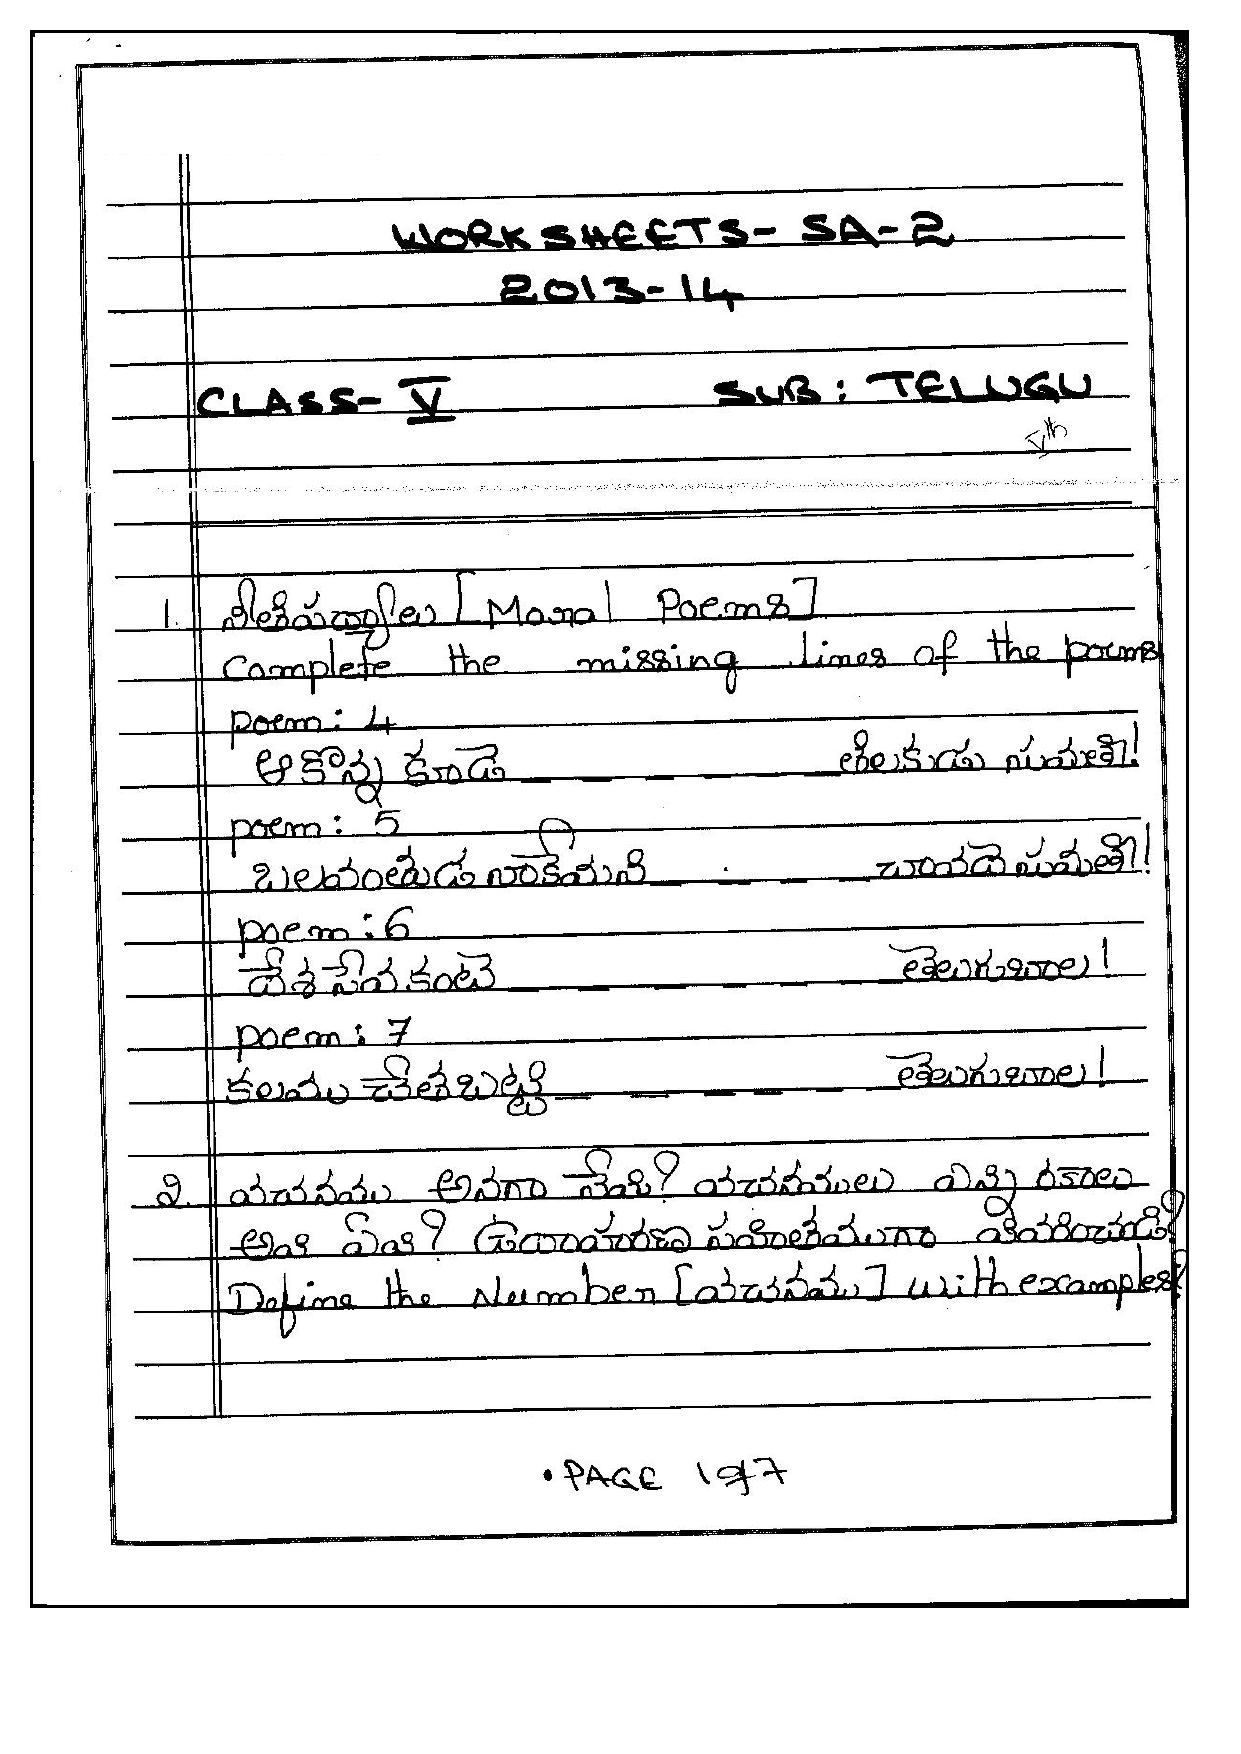 WORKSHEETS- SA-2
2013-14
CLASS- V SUB: TELUGU
Vth
1. నీతిపద్యాలు [Moral Poems]
Complete the missing lines of the poems
poem: 4
ఆకొన్న కూడె _ _ _ _ తిలకుడు సుమతీ!
poem: 5
బలవంతుడ నాకేమని _ _ _ _ చావదె సుమతీ!
poem: 6
దేశ సేవ కంటె _ _ _ _ తెలుగుబాల!
poem: 7
కలము చేతబట్టి _ _ _ _ తెలుగుబాల!
2. వచనము అనగా నేమి? వచనములు ఎన్ని రకాలు
అవి ఏవి? ఉదాహరణ సహితముగా వివరించుడి?
Define the Number [వచనము] with examples?
PAGE 1of7